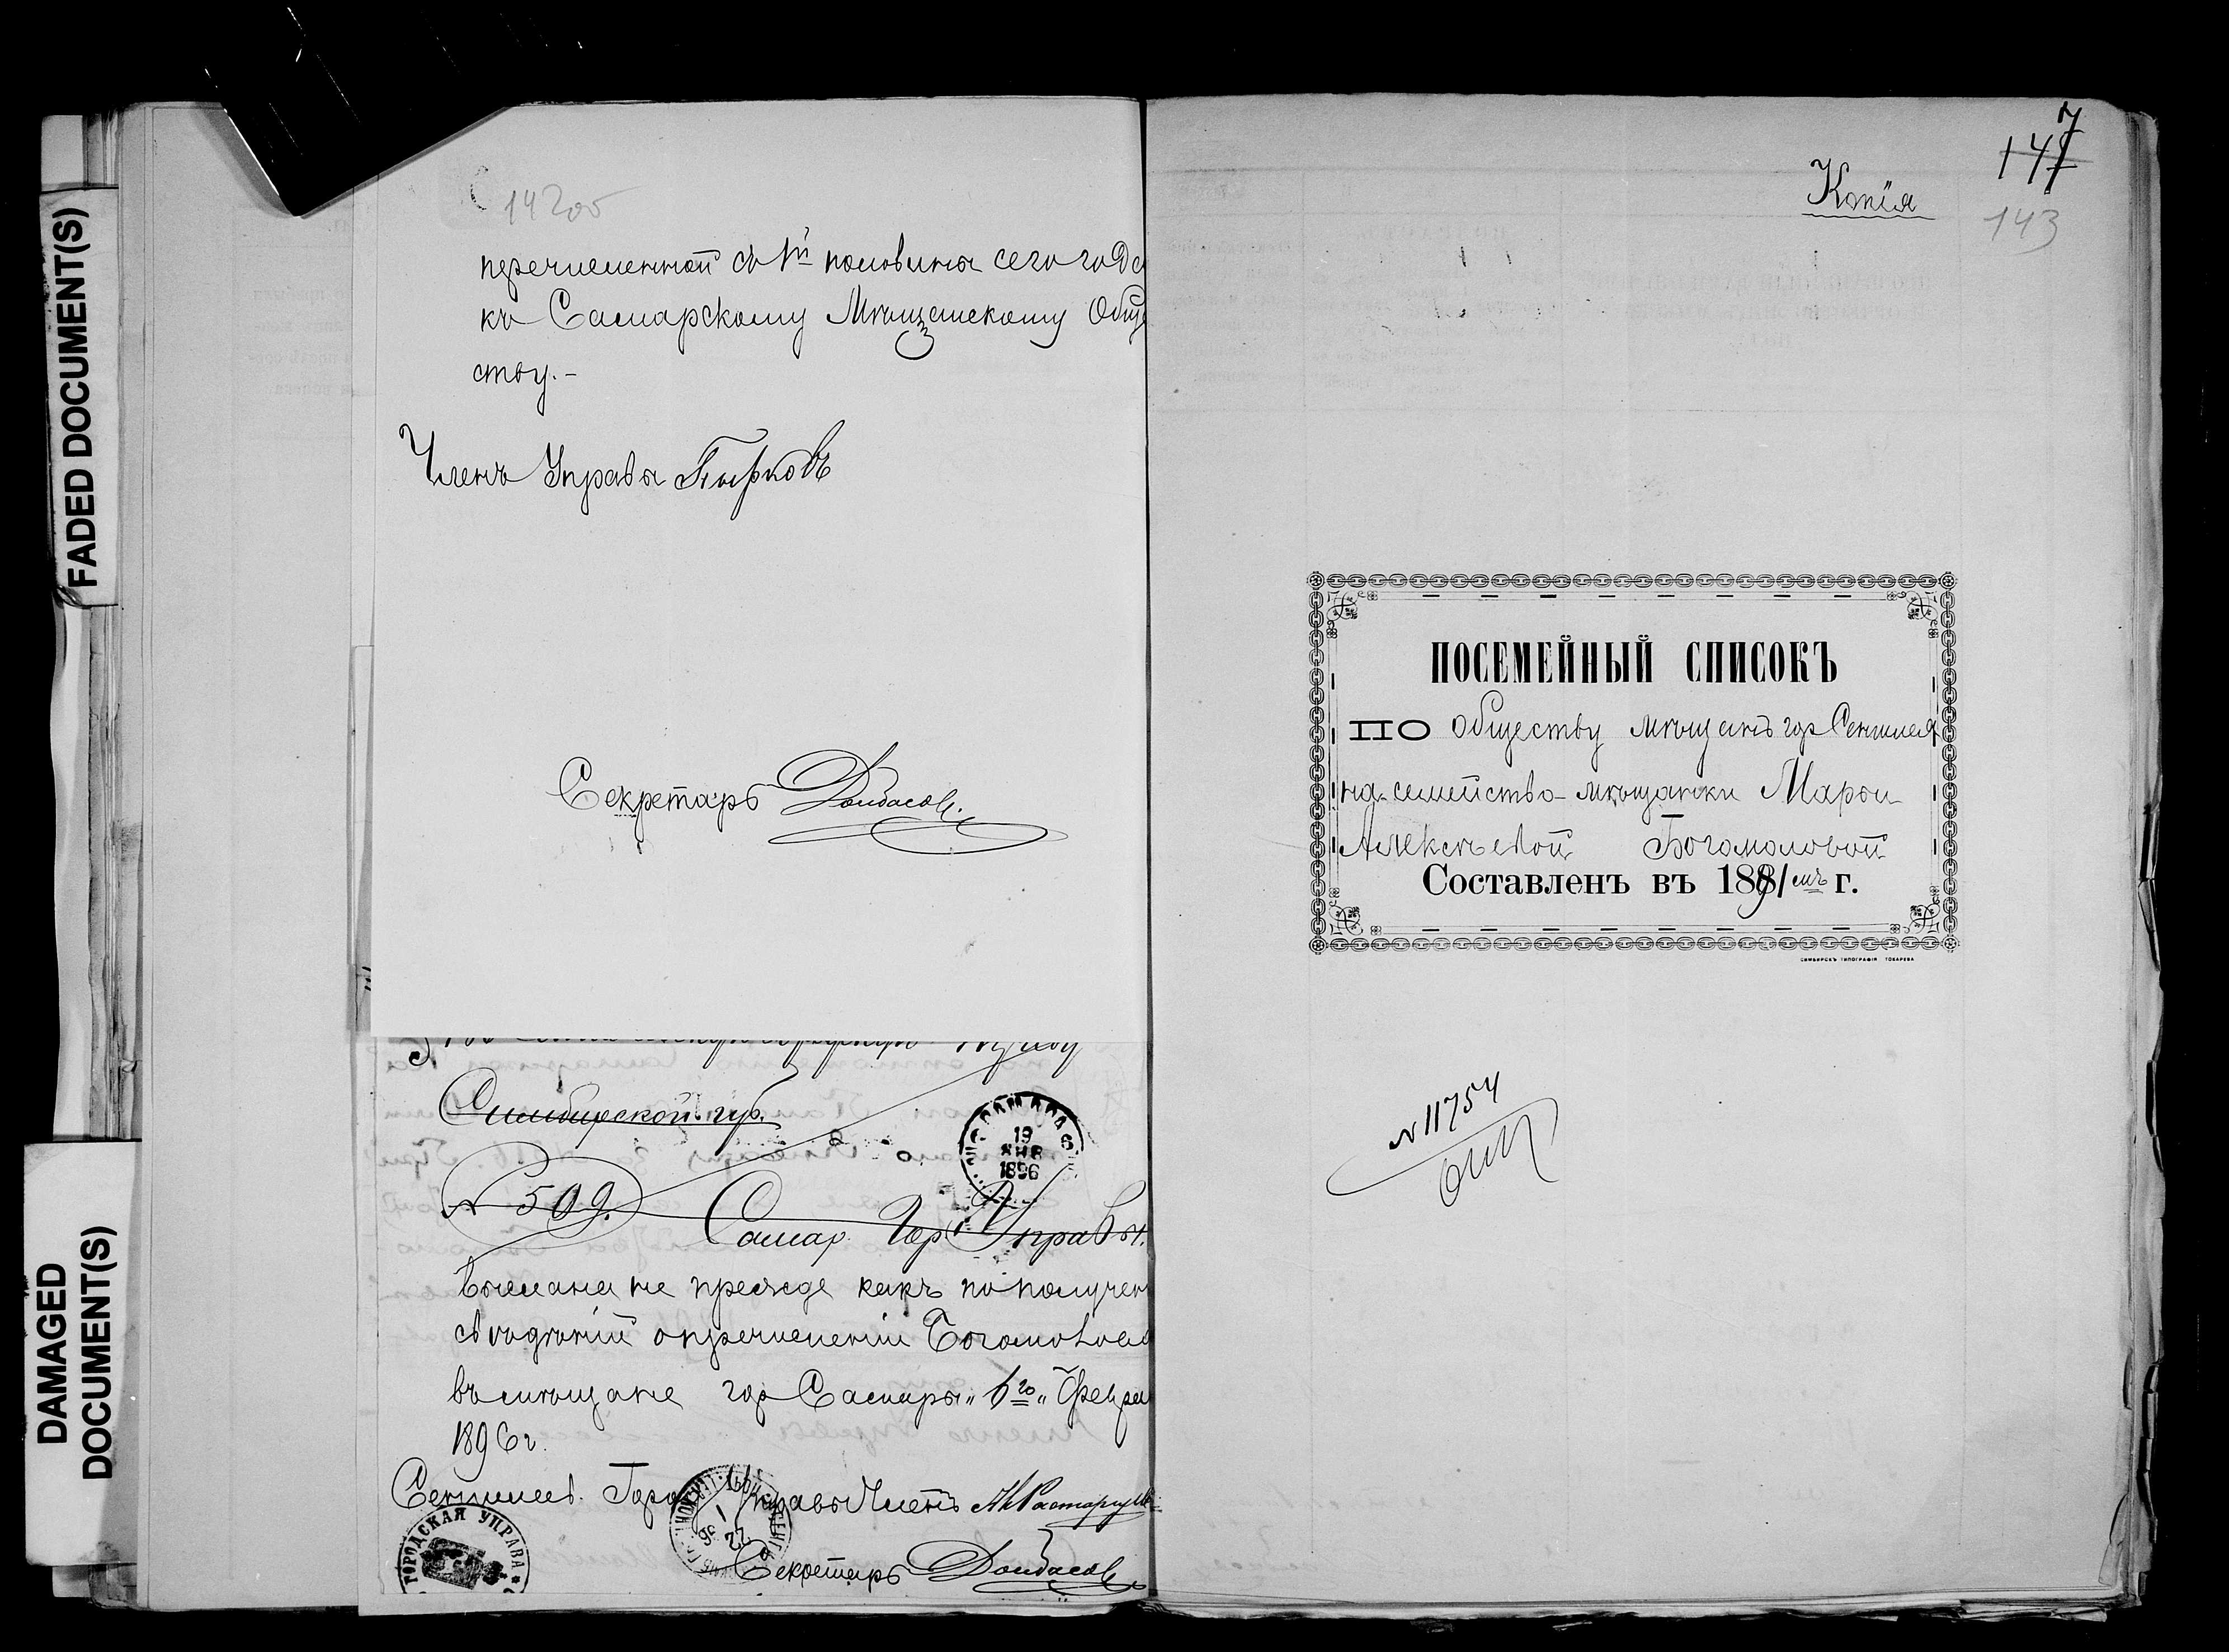 FADED DOCUMENT(S)
DAMAGED
DOCUMENT(S)
142об
перечисленной съ 1й половины сего года
къ Самарскому Мѣщанскому Обще
ству.-
Членъ Управы Пырковъ
Секретарь
Симбирской губ.
N 509.
19
ЯНВ
1896
Самар. Гор. Управы.
выслана не прежде какъ по получен
свѣдѣній о перечисленіи Богомолов
въ мѣщане гор Самары „6го„ Февра
1896г.
Сенгилеев. Город Управы Членъ
ГОРОДСКАЯ УПРАВА
Секретарь
7
147
Копія
143
ПОСЕМЕЙНЫЙ СПИСОКЪ
ПО обществу мѣщанъ гор Сенгилея
на семейство мѣщанки Марьи
Алексѣевой Богомоловой
Составленъ въ 1891 г.
СИМБИРСКЪ ТИПОГРАФІЯ ТОКАРЕВА
N 11754